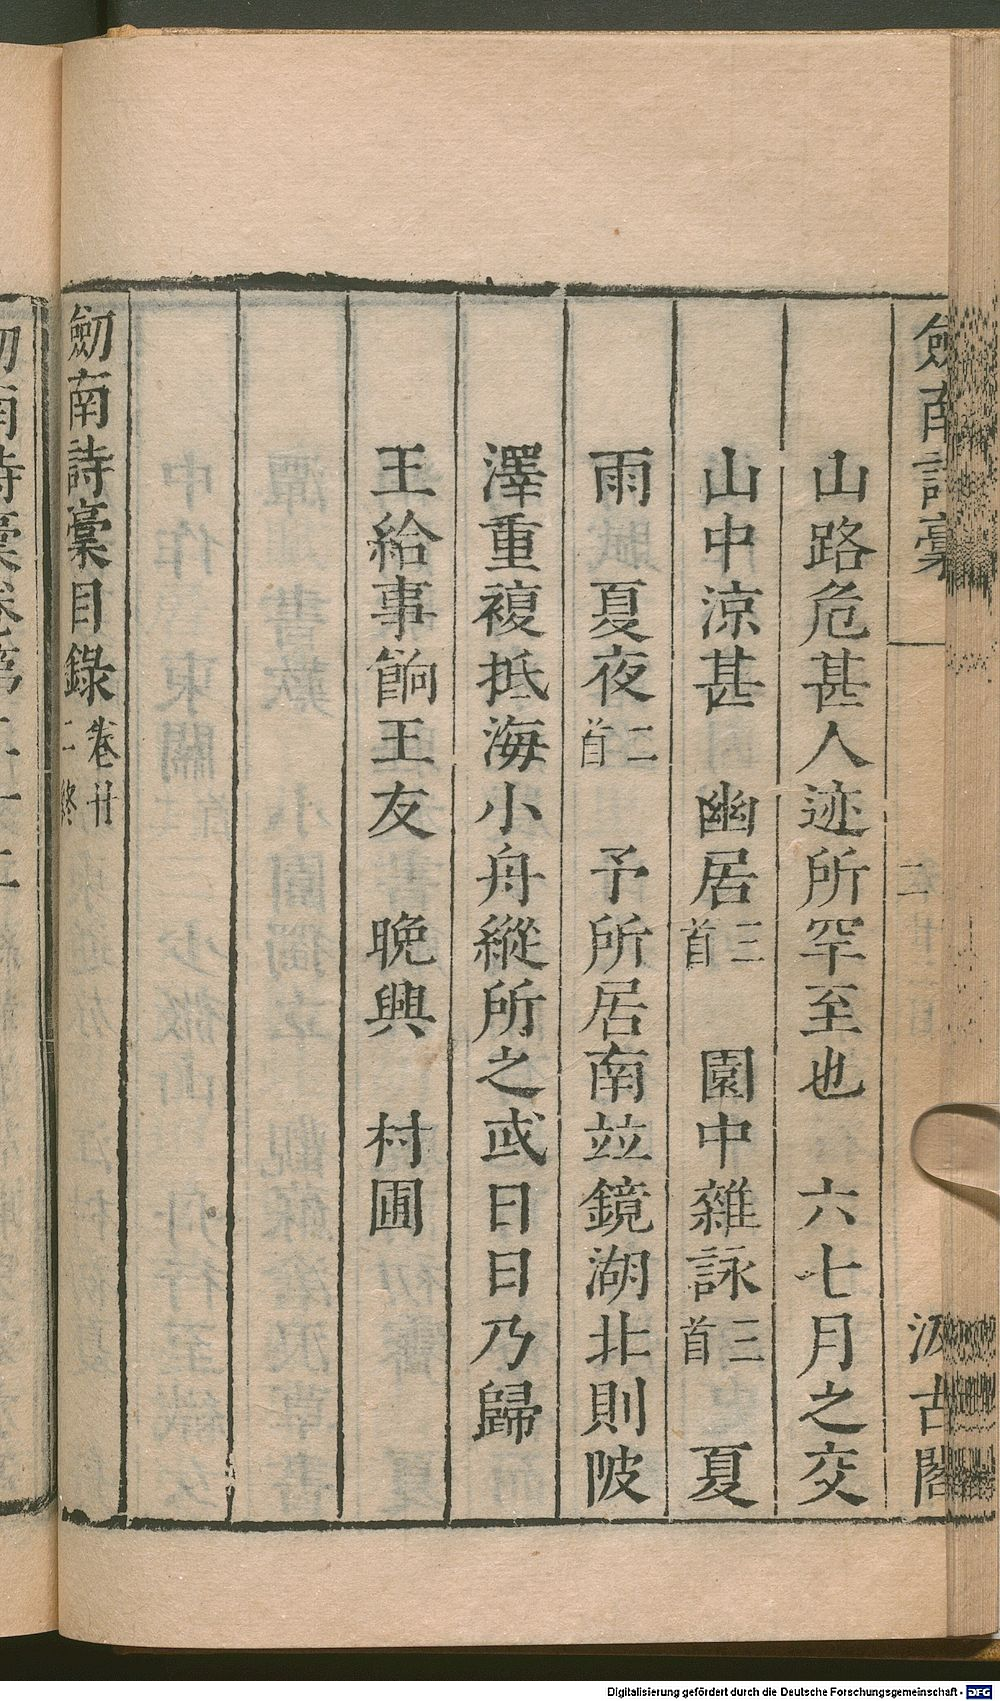 劎南詩稾
二
汲古閣
山路危甚人迹所罕至也 六七月之交
山中涼甚 幽居三首 園中雜詠三首 夏
雨 夏夜二首 予所居南竝鏡湖北則陂
澤重複抵海小舟縱所之或日日乃歸
王給事餉王友 晚興 村圃
劎南詩稾目錄卷廿二終
劎南詩稾卷第二十二
Digitalisierung gefördert durch die Deutsche Forschungsgemeinschaft - DFG